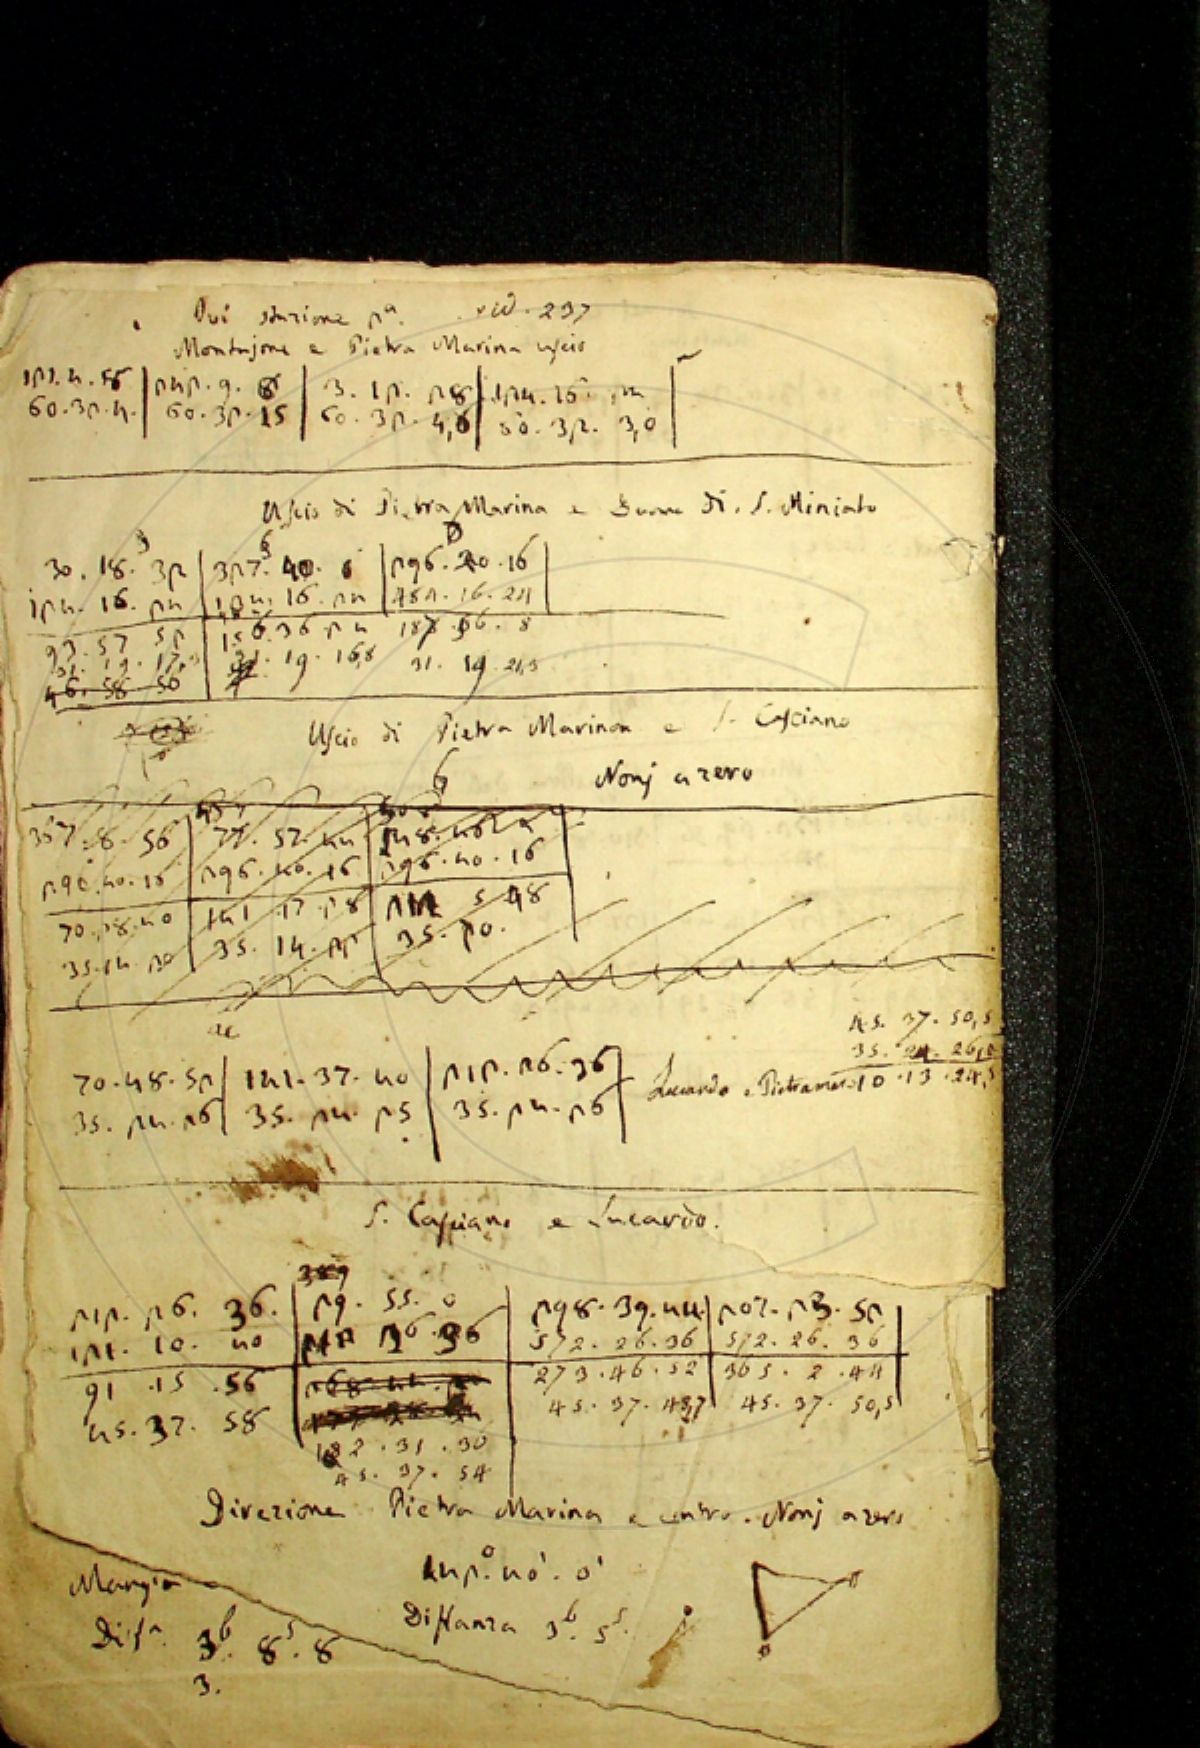 Qui stazione 2ª. vid. 237
Montajone e Pietra Marina uscio
121.4.56 | 242.9.8 | 3.12.28 | 124.16.24
60.32.4. | 60.32.15 | 60.32.4,6 | 60.32.3,0
Uscio di Pietra Marina e Duomo di S. Miniato
3 | 5 | 6
30.18.32 | 327.40.0 | 296.20.16
124.16.24 | 124.16.24 | 484.16.24
93.57 52 | 156.36 24 | 187.56.8
31.19.17,3 | 31.19.16,8 | 31.19.21,3
46.58.56
Uscio di Pietra Marina e S. Casciano
6 Nonj a zero
437 | 508
367.8.56 | 77.57.44 | 148.46.4
296.40.16 | 296.40.16 | 296.40.16
70.28.40 | 141.17.28 | 212 5 48
35.14.20 | 35.14.22 | 35.20.
45.37.50,5
35.24.26,0
70.48.52 | 141.37.40 | 212.26.36 Lucardo e Pietramar. 10.13.24,5
35.24.26 | 35.24.25 | 35.24.26
S. Casciano e Lucardo.
389
212.26.36. | 29.55.0 | 298.39.44 | 207.23.52
121.10.40 | 212 26.36 | 572.26.36 | 572.26.36
91.15.56 | 273.46.52 | 365.2.44
45.37.58 | 45.37.48,7 | 45.37.50,5
182.31.30
45.37.54
Direzione Pietra Marina e centro. Nonj a zero
142°.40'.0'
Mangia
Distanza 3b. 5s.
Dista. 3b. 8s. 8
3.